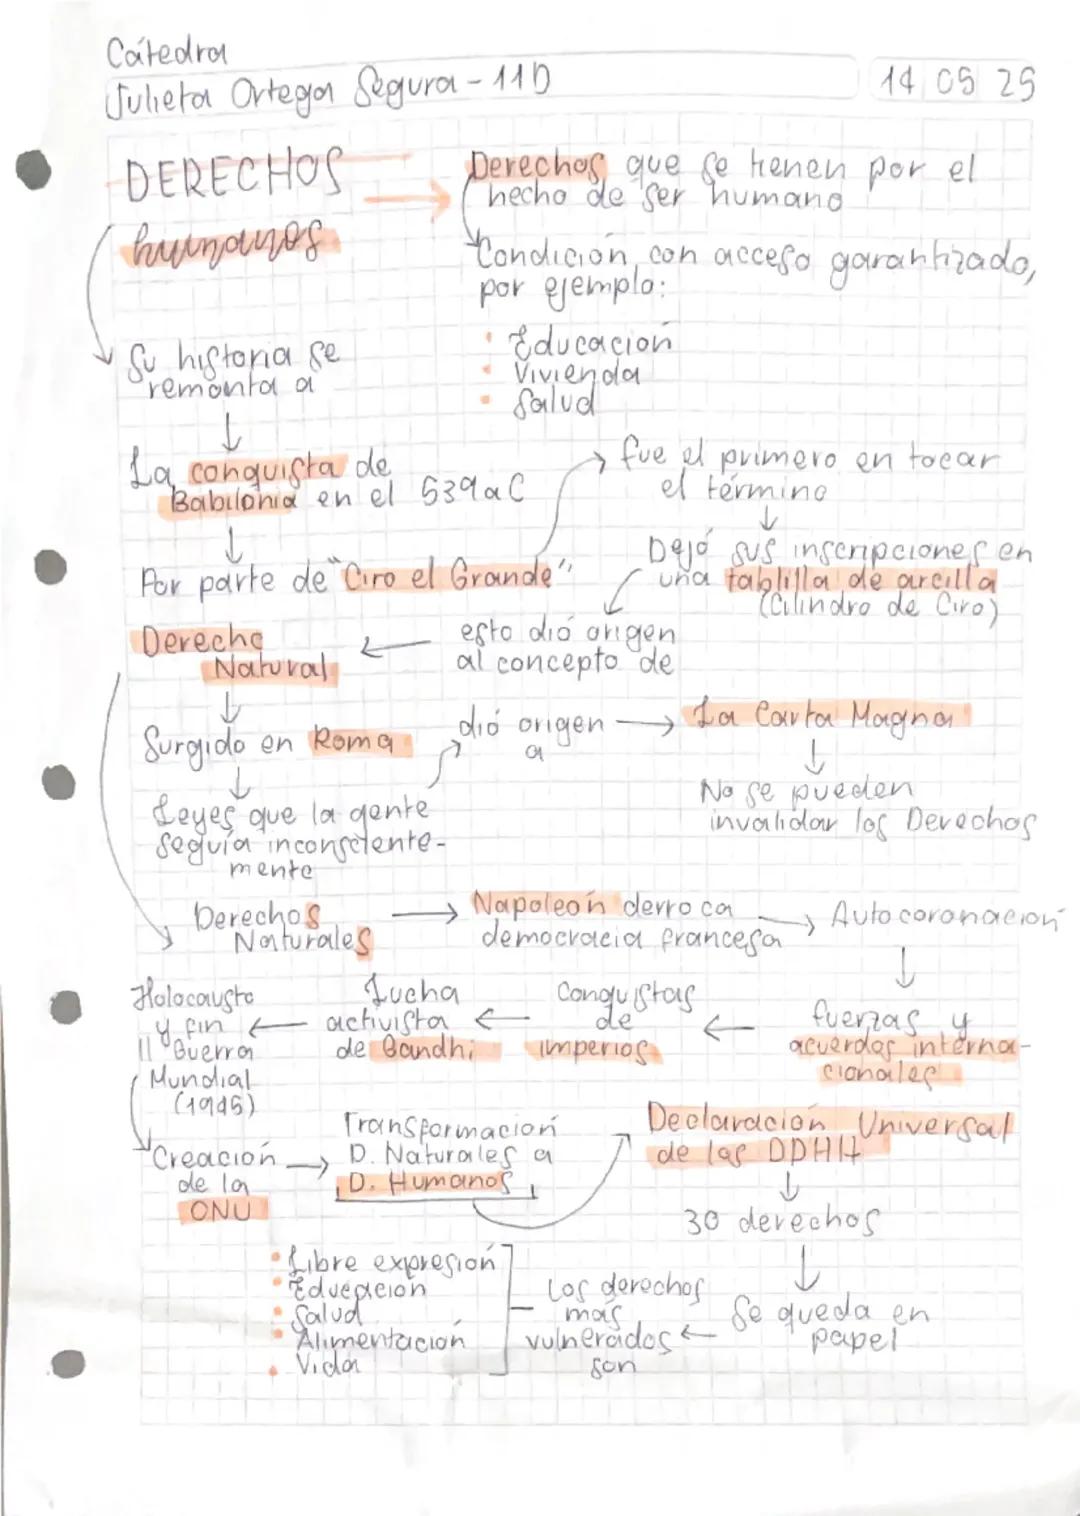 Cátedra
Julieta Ortega Segura - 11D
14 05 25
DERECHOS
humanos
Derechos que se tienen por el
hecho de ser humano
Condición con acceso garantizado,
por ejemplo:
• Educación
• Vivienda
• Salud
Su historia se
remonta a
La conquista de
Babilonia en el 539 a C
Por parte de "Ciro el Grande"
fue el primero en tocar
el término
Dejó sus inscripciones en
una tablilla de arcilla
(Cilindro de Ciro)
esto dió origen
al concepto de
Derecho
Natural
Surgido en Roma
Leyes que la gente
seguía inconsciente-
mente
dió origen
a
La Carta Magna
No se pueden
invalidar los Derechos
Derechos
Naturales
Napoleón derroca
democracia francesa
Autocoronación
fuerzas y
acuerdos interna-
cionales
Conquistas
de
imperios
Lucha
activista
de Gandhi
Holocausto
y fin
II Guerra
Mundial
(1945)
Creación
de la
ONU
Transformación
D. Naturales a
D. Humanos
Declaración Universal
de las DDHH
30 derechos
Se queda en
papel
Los derechos
más
vulnerados
son
• Libre expresión
• Educación
• Salud
• Alimentación
• Vida